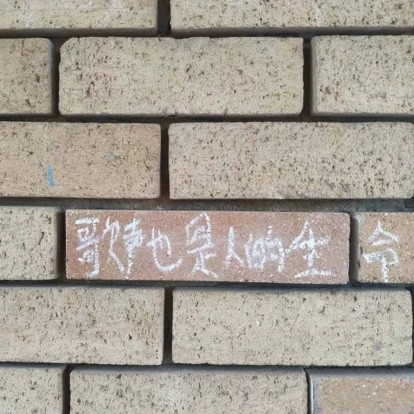 歌声也是人的生命